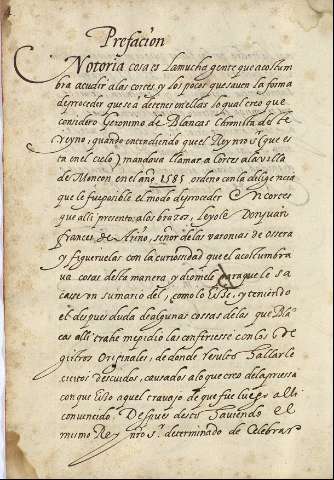 Prefacion
Notoria cosa es la mucha gente que acostum
bra acudir a las cortes, y los pocos que saven la forma
de proceder que se a de tener en ellas lo qual creo que
considero Geronimo de Blancas Chronista deste
reyno, quando entendiendo que el Rey nro sr (que es
ta en el cielo) mandava llamar a Cortes a la villa
de Monçon en el año 1585 ordeno con la deligencia
que le fue posible el modo de proceder En cortes
que alli presento; a los brazos, leyole Don Juan
Frances de Ariño, señor de las varonias de Ossera
y figueruelas con la curiosidad que el acostumbra
va cosas desta manera y diomele para que le sa
casse un sumario del, como lo hize, y teniendo
el despues duda de algunas cossas de las que Bla
cas alli trahe me pidio las confiriesse con los Re
gistros Originales, de donde resulto hallarle
ciertos descuidos, causados a lo que creo de la priessa
con que hizo aquel travajo de que fue luego alli
convencido. Despues desto haviendo el
mismo Rey nro Sr. determinado de Celebrar